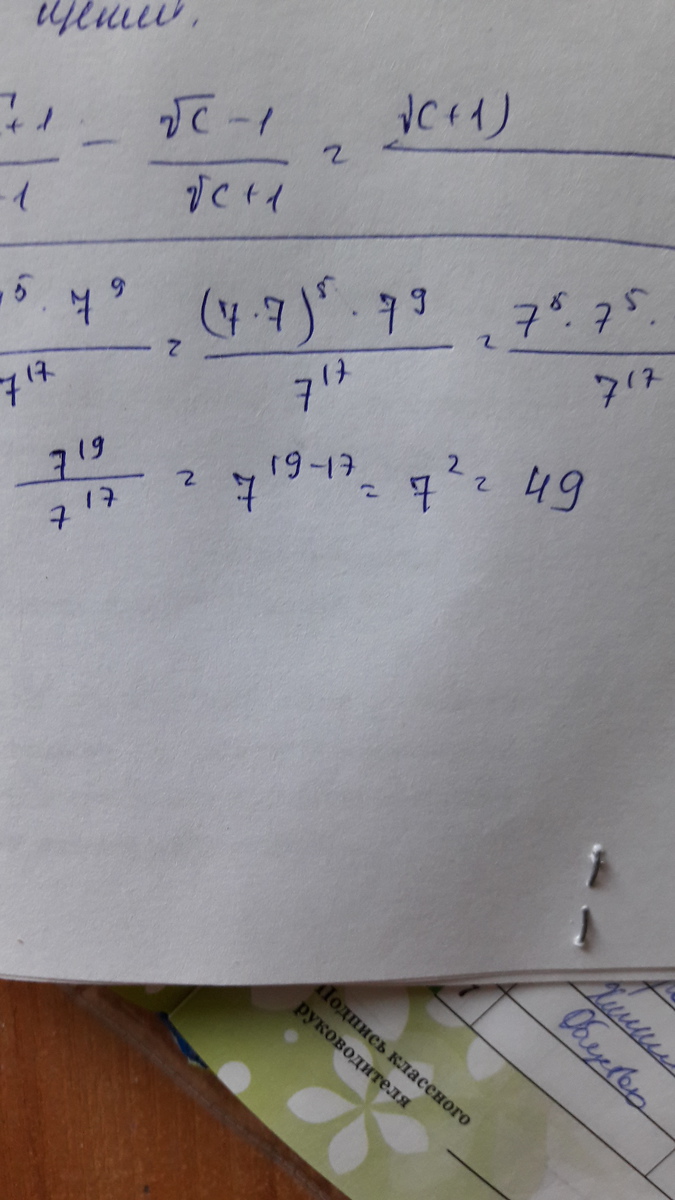 +1 / -1 − (√c - 1) / (√c + 1) = √c + 1)
⁵ · 7⁹ / 7¹⁷ = (7·7)⁵ · 7⁹ / 7¹⁷ = 7⁵ · 7⁵ · / 7¹⁷
7¹⁹ / 7¹⁷ = 7¹⁹⁻¹⁷ = 7² = 49
Подпись классного
руководителя